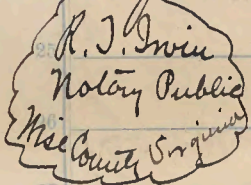 R. T. Irwin
Notary Public
Wise County Virginia